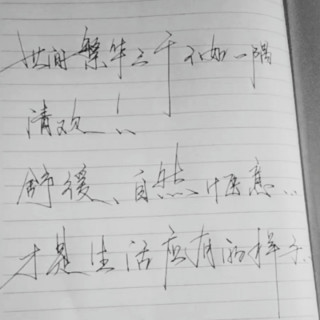 世间繁华三千不如一隅
清欢！
舒缓、自然、惬意
才是生活应有的样子